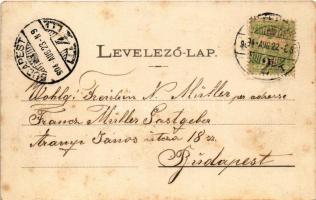 LEVELEZŐ-LAP.
BUDAPEST
904 AUG 23
904 AUG 22
Wohlg. Fräulein N. Müller per adresse
Franz Müller Gastgeber
Arany János utcza 18 sz.
Budapest